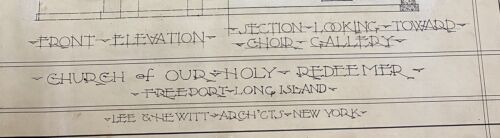 FRONT ELEVATION
SECTION LOOKING TOWARD
CHOIR GALLERY
CHURCH of OUR HOLY REDEEMER
FREEPORT LONG ISLAND
LEE & HEWITT ARCH'CTS NEW YORK